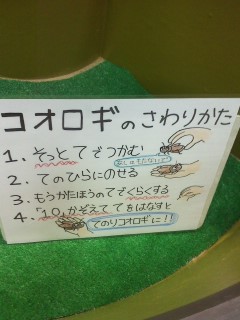 コオロギのさわりかた
1. そっと てで つかむ
あしは もたないで
2. てのひらにのせる
3. もうかたほうのてでくらくする
4. 「10」かぞえて てをはなすと
てのりコオロギに!!